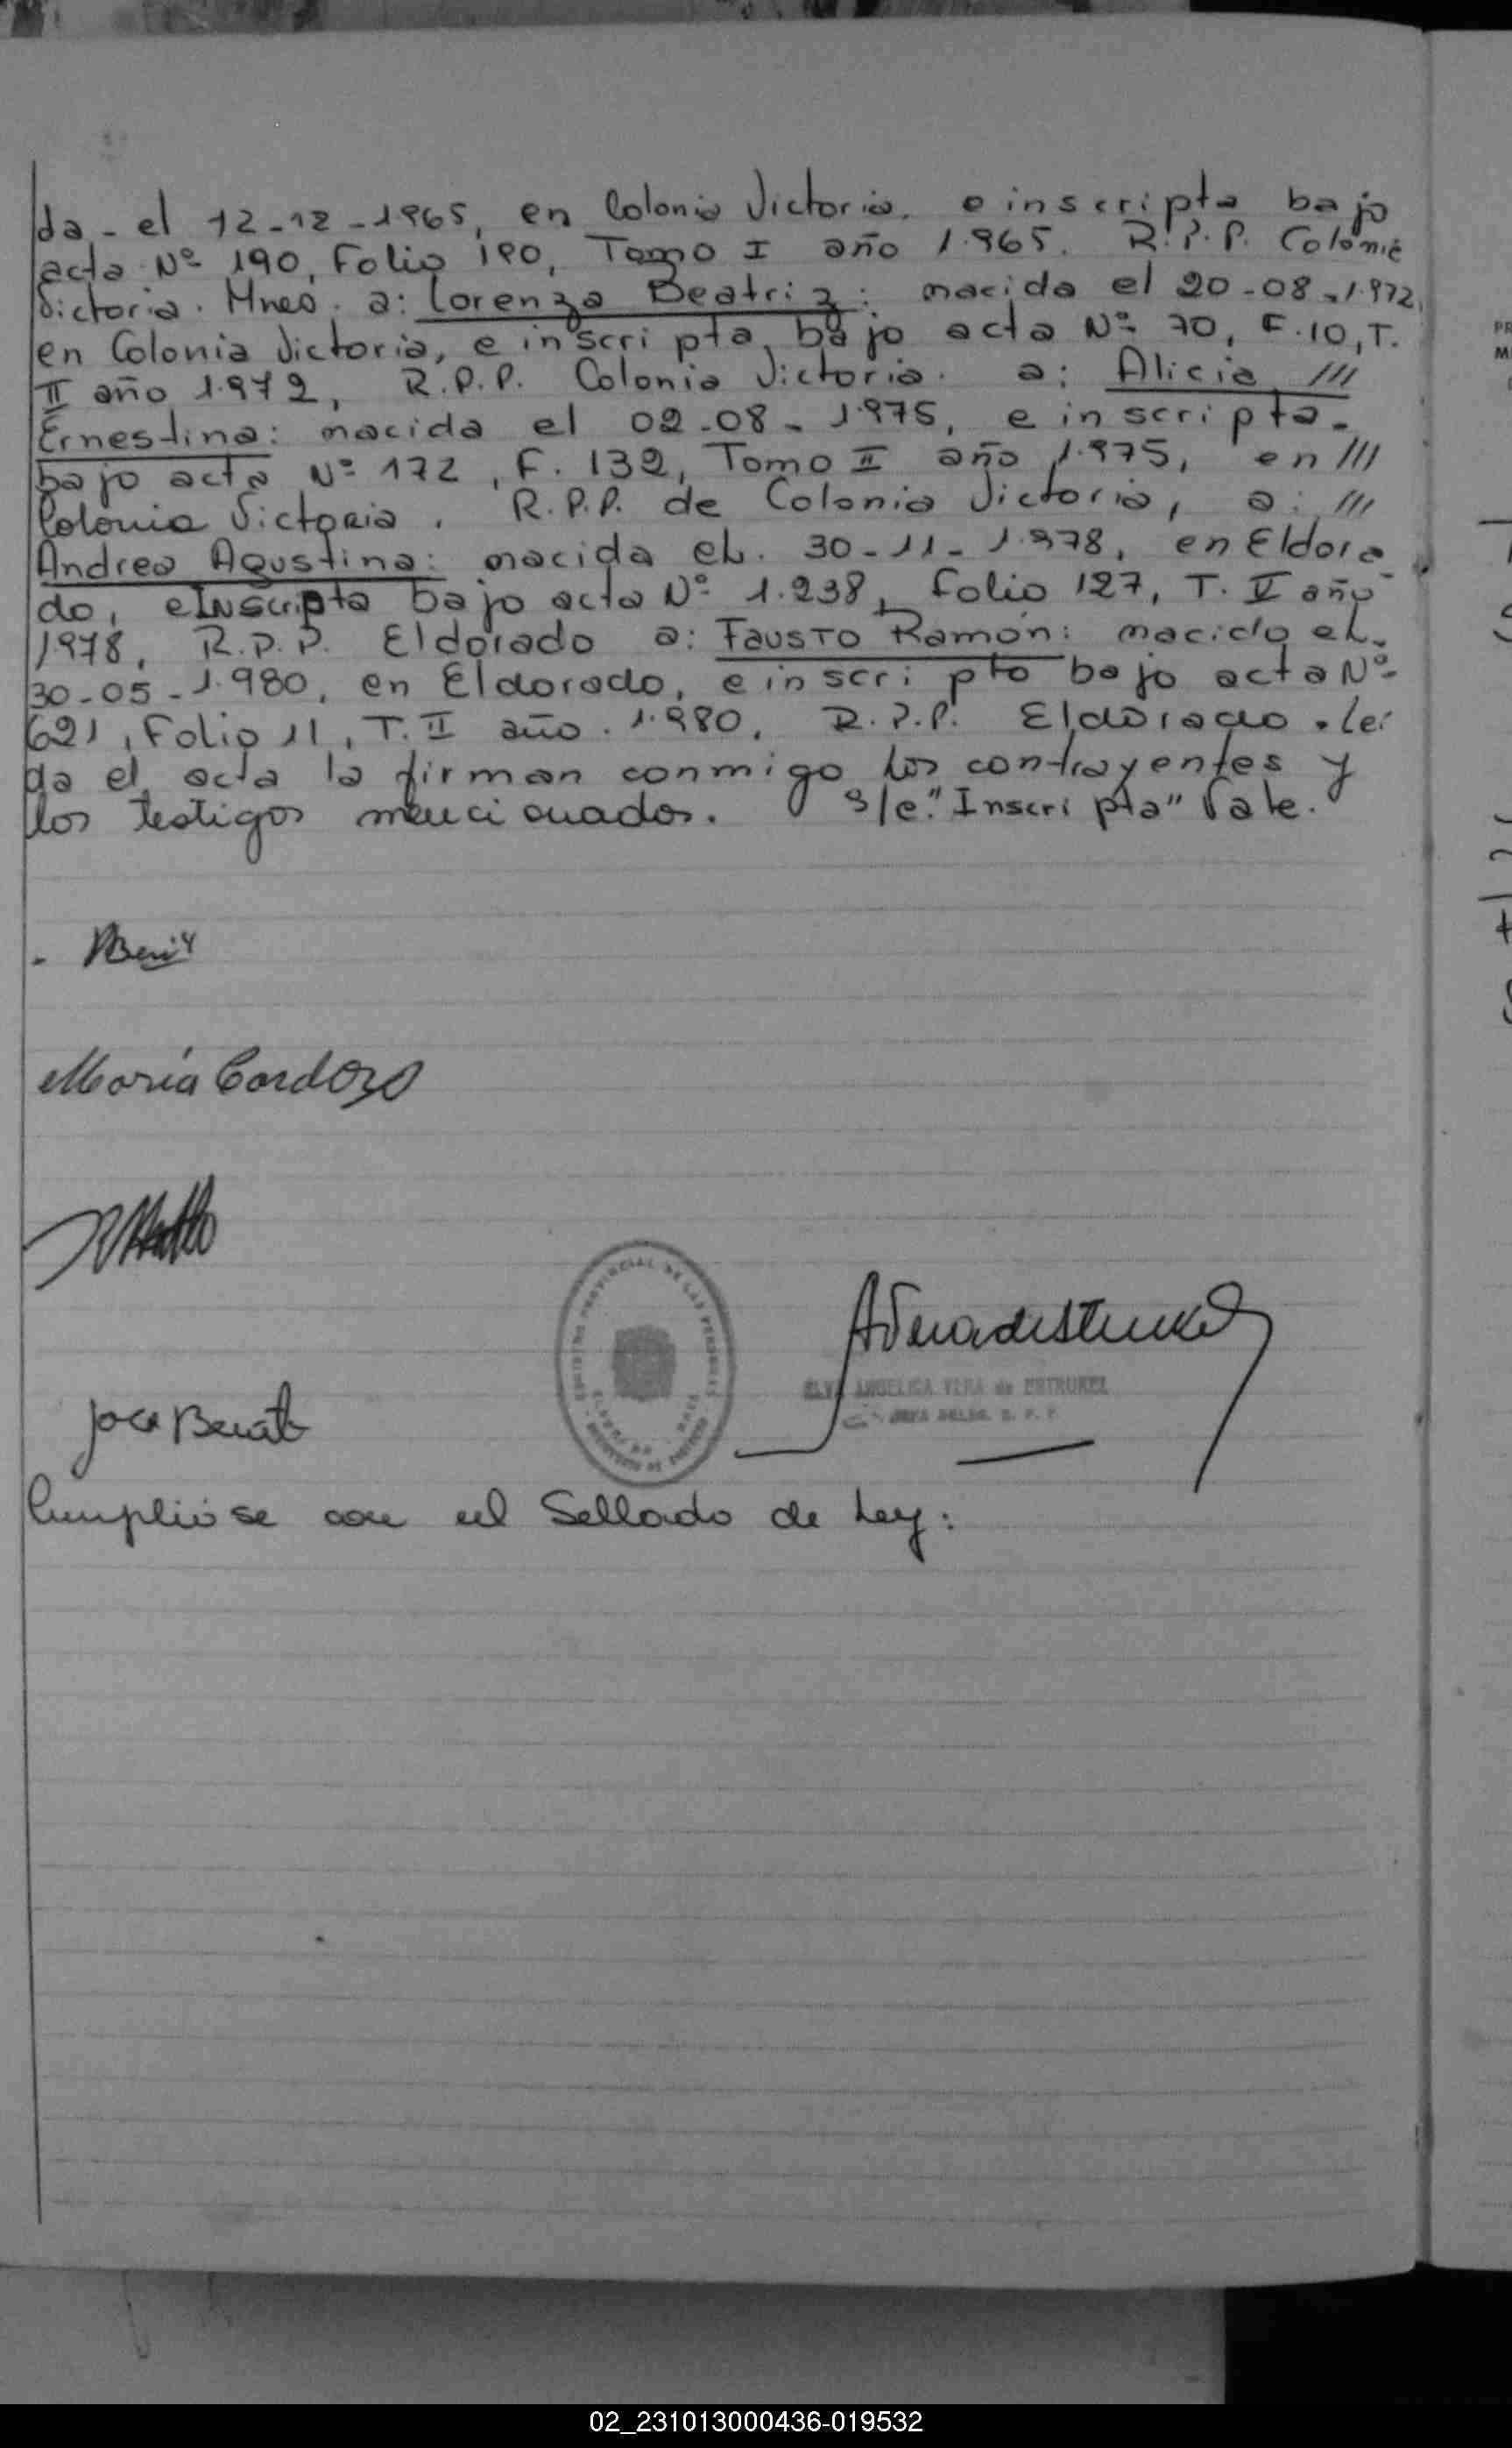 da - el 12-12-1965, en Colonia Victoria. e inscripta bajo
acta Nº 190, Folio 190, Tomo I año 1.965. R.P.P. Colonia
Victoria. Mnes. a: Lorenza Beatriz: nacida el 20-08-1.972,
en Colonia Victoria, e inscripta bajo acta Nº 70, F.10, T.
II año 1.972, R.P.P. Colonia Victoria. a: Alicia ///
Ernestina: nacida el 02-08-1.975, e inscripta-
bajo acta Nº 172, F. 132, Tomo II año 1.975, en ///
Colonia Victoria. R.P.P. de Colonia Victoria, a: ///
Andrea Agustina: nacida el. 30-11-1.978, en Eldora
do, e Inscripta bajo acta Nº 1.238, Folio 127, T. V año
1978, R.P.P. Eldorado a: Fausto Ramón: nacido el-
30-05-1.980, en Eldorado, e inscripto bajo acta Nº-
621, Folio 11, T. II año. 1.980, R.P.P. Eldorado. Lei
da el acta la firman conmigo los contrayentes y
los testigos mencionados. S/e: "Inscripta" Vale.
María Cardozo
REGISTRO PROVINCIAL DE LAS PERSONAS
ELVA ANGELICA VERA de ESTRUKEL
JEFA DELEG. R. P. P.
Cumplióse con el Sellado de Ley:
02_231013000436-019532